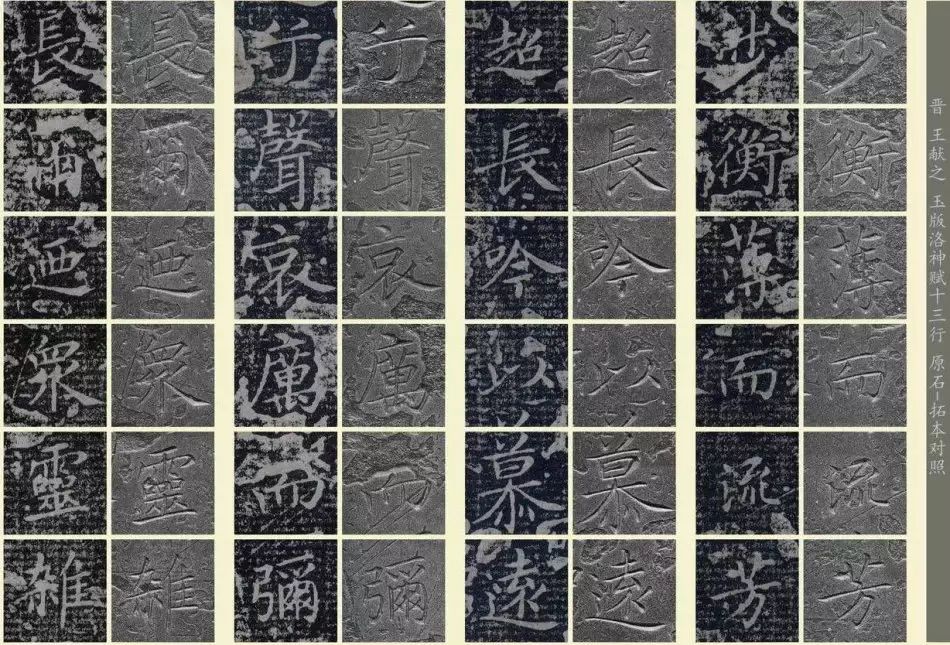 晋 王献之 玉版洛神赋十三行 原石-拓本对照
步衡薄而流芳
步衡薄而流芳
超長吟以慕遠
超長吟以慕遠
兮聲哀厲而彌
兮聲哀厲而彌
長爾迺眾靈雜
長爾迺眾靈雜